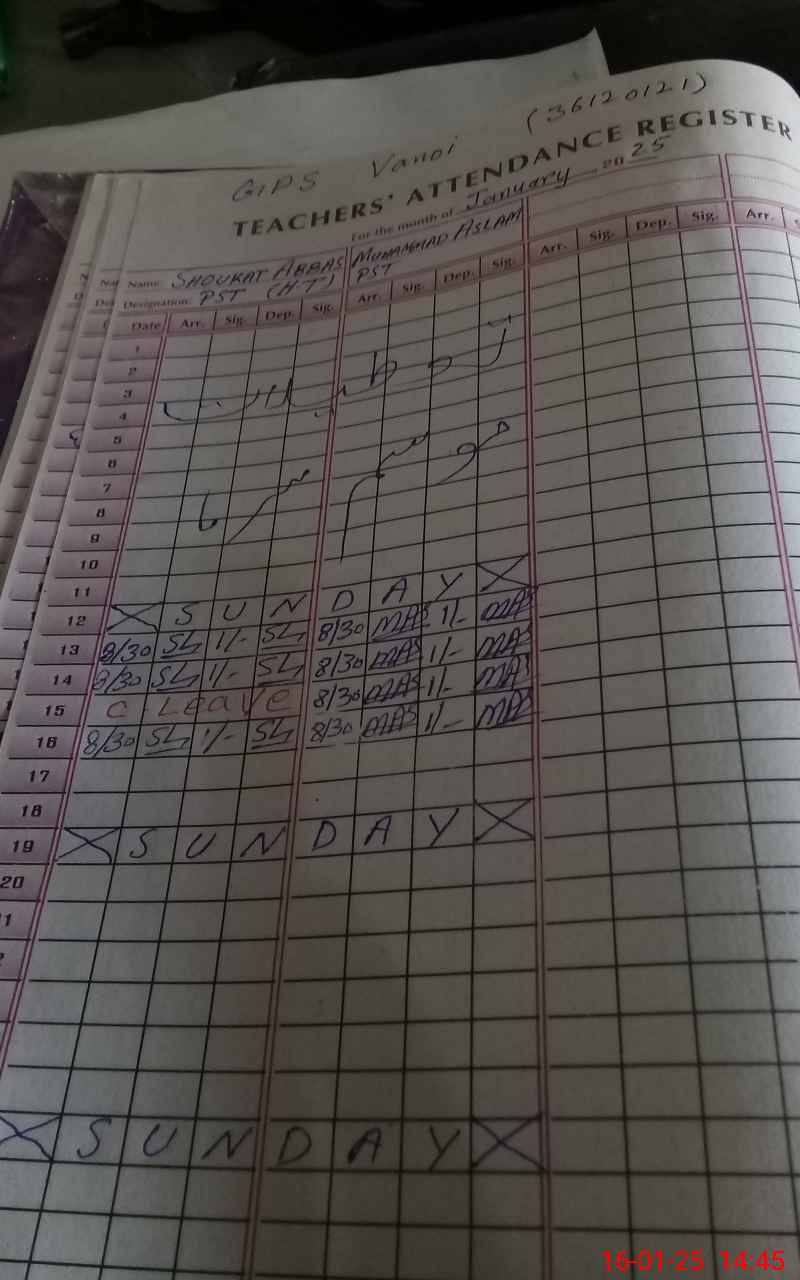 GPS Vanoi (36120121)
TEACHERS' ATTENDANCE REGISTER
For the month of January 2025
Name: SHOUKAT ABBAS MUHAMMAD ASLAM
Designation: PST (H.T) PST
Date Arr. Sig. Dep. Sig. Arr. Sig. Dep. Sig. Arr. Sig. Dep. Sig. Arr.
1
2
3
4
5
6
7
8
9
10
11
12 X S U N D A Y X
13 8/30 SL 1/- SL 8/30 MAS 1/- MAS
14 8/30 SL 1/- SL 8/30 MAS 1/- MAS
15 C-Leave 8/30 MAS 1/- MAS
16 8/30 SL 1/- SL 8/30 MAS 1/- MAS
17
18
19 X S U N D A Y X
20
X S U N D A Y X
16-01-25 14:45